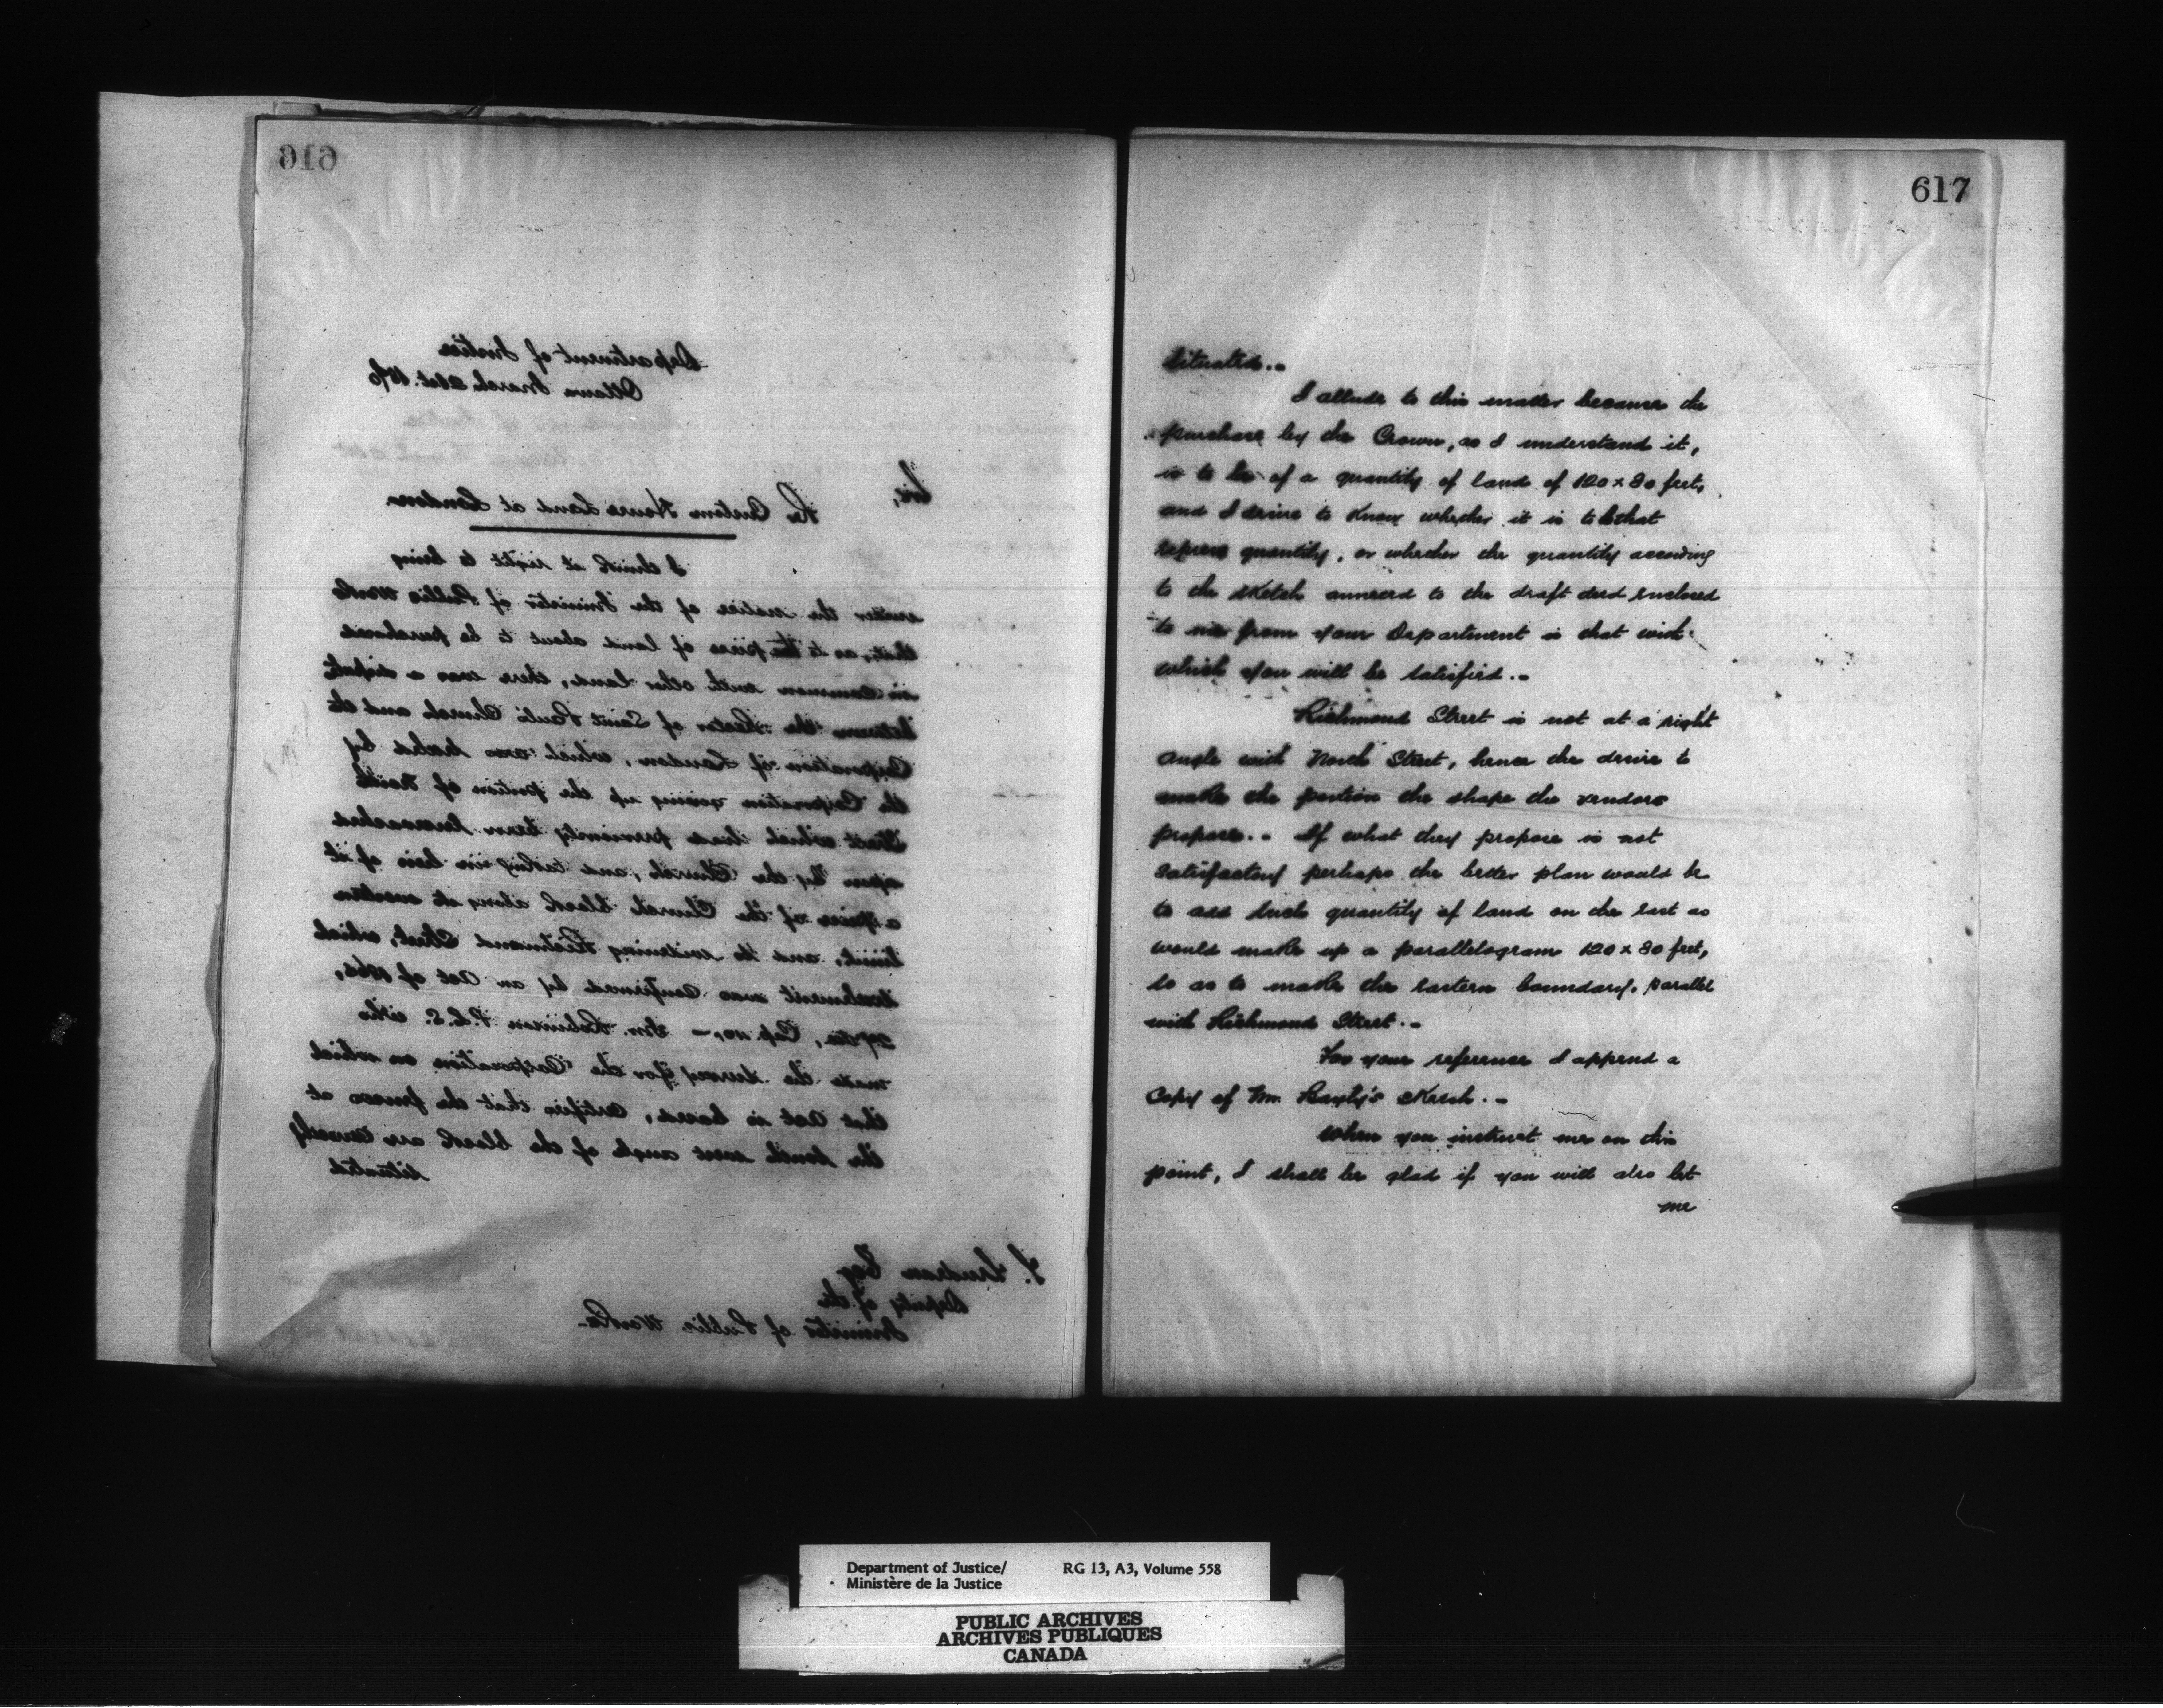 616
Department of Justice
Ottawa March 21st. 1870
Sir,
Re Custom House Land at London
I think it right to bring
under the notice of the Minister of Public Works
that, as to the piece of land about to be purchased
in common with other land, there was a dispute
between the Rector of Saint Pauls Church and the
Corporation of London, which was settled by
the Corporation giving up the portion of North
Street which had previously been encroached
upon by the Church, and taking in lieu of it
a piece of the Church block along its western
limit, and so widening Richmond Street, which
settlement was confirmed by an Act of 1866,
Cap. Wm. Robinson P.L.S. who
made the survey for the Corporation on which
that Act is based, certifies that the fences at
the South west angle of the block are correctly
situated
T. Trudeau Esq
Deputy of the
Minister of Public Works.
617
situated.-
I allude to this matter because the
purchase by the Crown, as I understand it,
is to be of a quantity of land of 120 x 80 feet,
and I desire to know whether it is to be that
express quantity, or whether the quantity according
to the sketch annexed to the draft deed enclosed
to me from your Department is that with
which you will be satisfied.-
Richmond Street is not at a right
angle with North Street, hence the desire to
make the portion the shape the vendors
propose.- If what they propose is not
satisfactory perhaps the better plan would be
to add such quantity of land on the east as
would make up a parallelogram 120 x 80 feet,
so as to make the eastern boundary parallel
with Richmond Street.-
For your reference I append a
Copy of Mr. Sketch.-
When you instruct me on this
point, I shall be glad if you will also let
me
Department of Justice/ RG 13, A3, Volume 558
Ministère de la Justice
PUBLIC ARCHIVES
ARCHIVES PUBLIQUES
CANADA